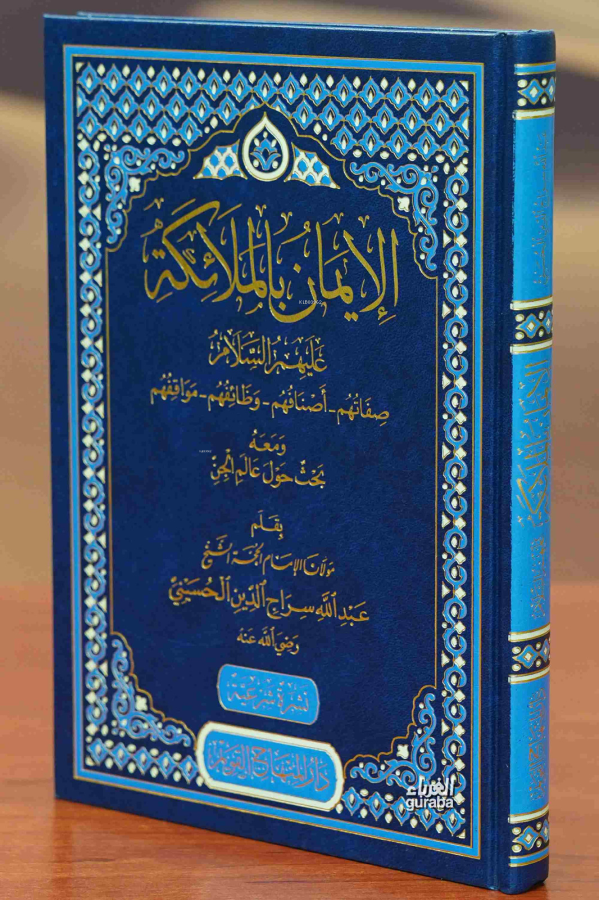 الإِيمَانُ بِالمَلَائِكَةِ
عَلَيْهِمُ السَّلَامُ
صِفَاتُهُم - أَصْنَافُهُم - وَظَائِفُهُم - مَوَاقِفُهُم
وَمَعَهُ
بَحْثٌ حَوْلَ عَالَمِ الْجِنِّ
بِقَلَمِ
مَوْلَانَا الإِمَامِ الحُجَّةِ الشَّيْخِ
عَبْدِ اللَّهِ سِرَاجِ الدِّينِ الْحُسَيْنِيِّ
رَضِيَ اللَّهُ عَنْهُ
نَشْرَةٌ شَرْعِيَّةٌ
دَارُ المِنْهَاجِ القَوِيمِ
الغرباء
guraba
الإيمان بالملائكة